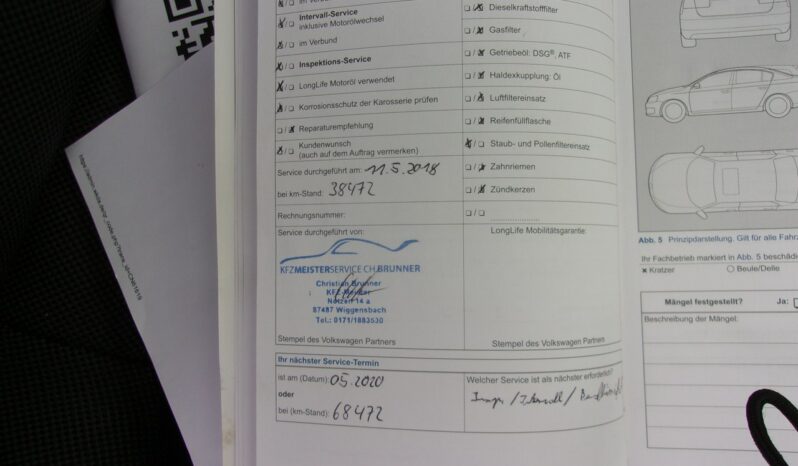 Intervall-Service
inklusive Motorölwechsel
im Verbund
Inspektions-Service
LongLife Motoröl verwendet
Korrosionsschutz der Karosserie prüfen
Reparaturempfehlung
Kundenwunsch
(auch auf dem Auftrag vermerken)
Service durchgeführt am: 11.5.2018
bei km-Stand: 38472
Rechnungsnummer:
Service durchgeführt von:
KFZMEISTERSERVICE CH.BRUNNER
Christian Brunner
KFZ-Meister
14 a
87487 Wiggensbach
Tel.: 0171/1883530
Stempel des Volkswagen Partners
Ihr nächster Service-Termin
ist am (Datum): 05.2020
oder
bei (km-Stand): 68472
Dieselkraftstofffilter
Gasfilter
Getriebeöl: DSG®, ATF
Haldexkupplung: Öl
Luftfiltereinsatz
Reifenfüllflasche
Staub- und Pollenfiltereinsatz
Zahnriemen
Zündkerzen
LongLife Mobilitätsgarantie:
Stempel des Volkswagen Partners
Welcher Service ist als nächster erforderlich?
Abb. 5 Prinzipdarstellung. Gilt für alle Fahrz
Ihr Fachbetrieb markiert in Abb. 5 beschädi
Kratzer
Beule/Delle
Mängel festgestellt? Ja:
Beschreibung der Mängel: